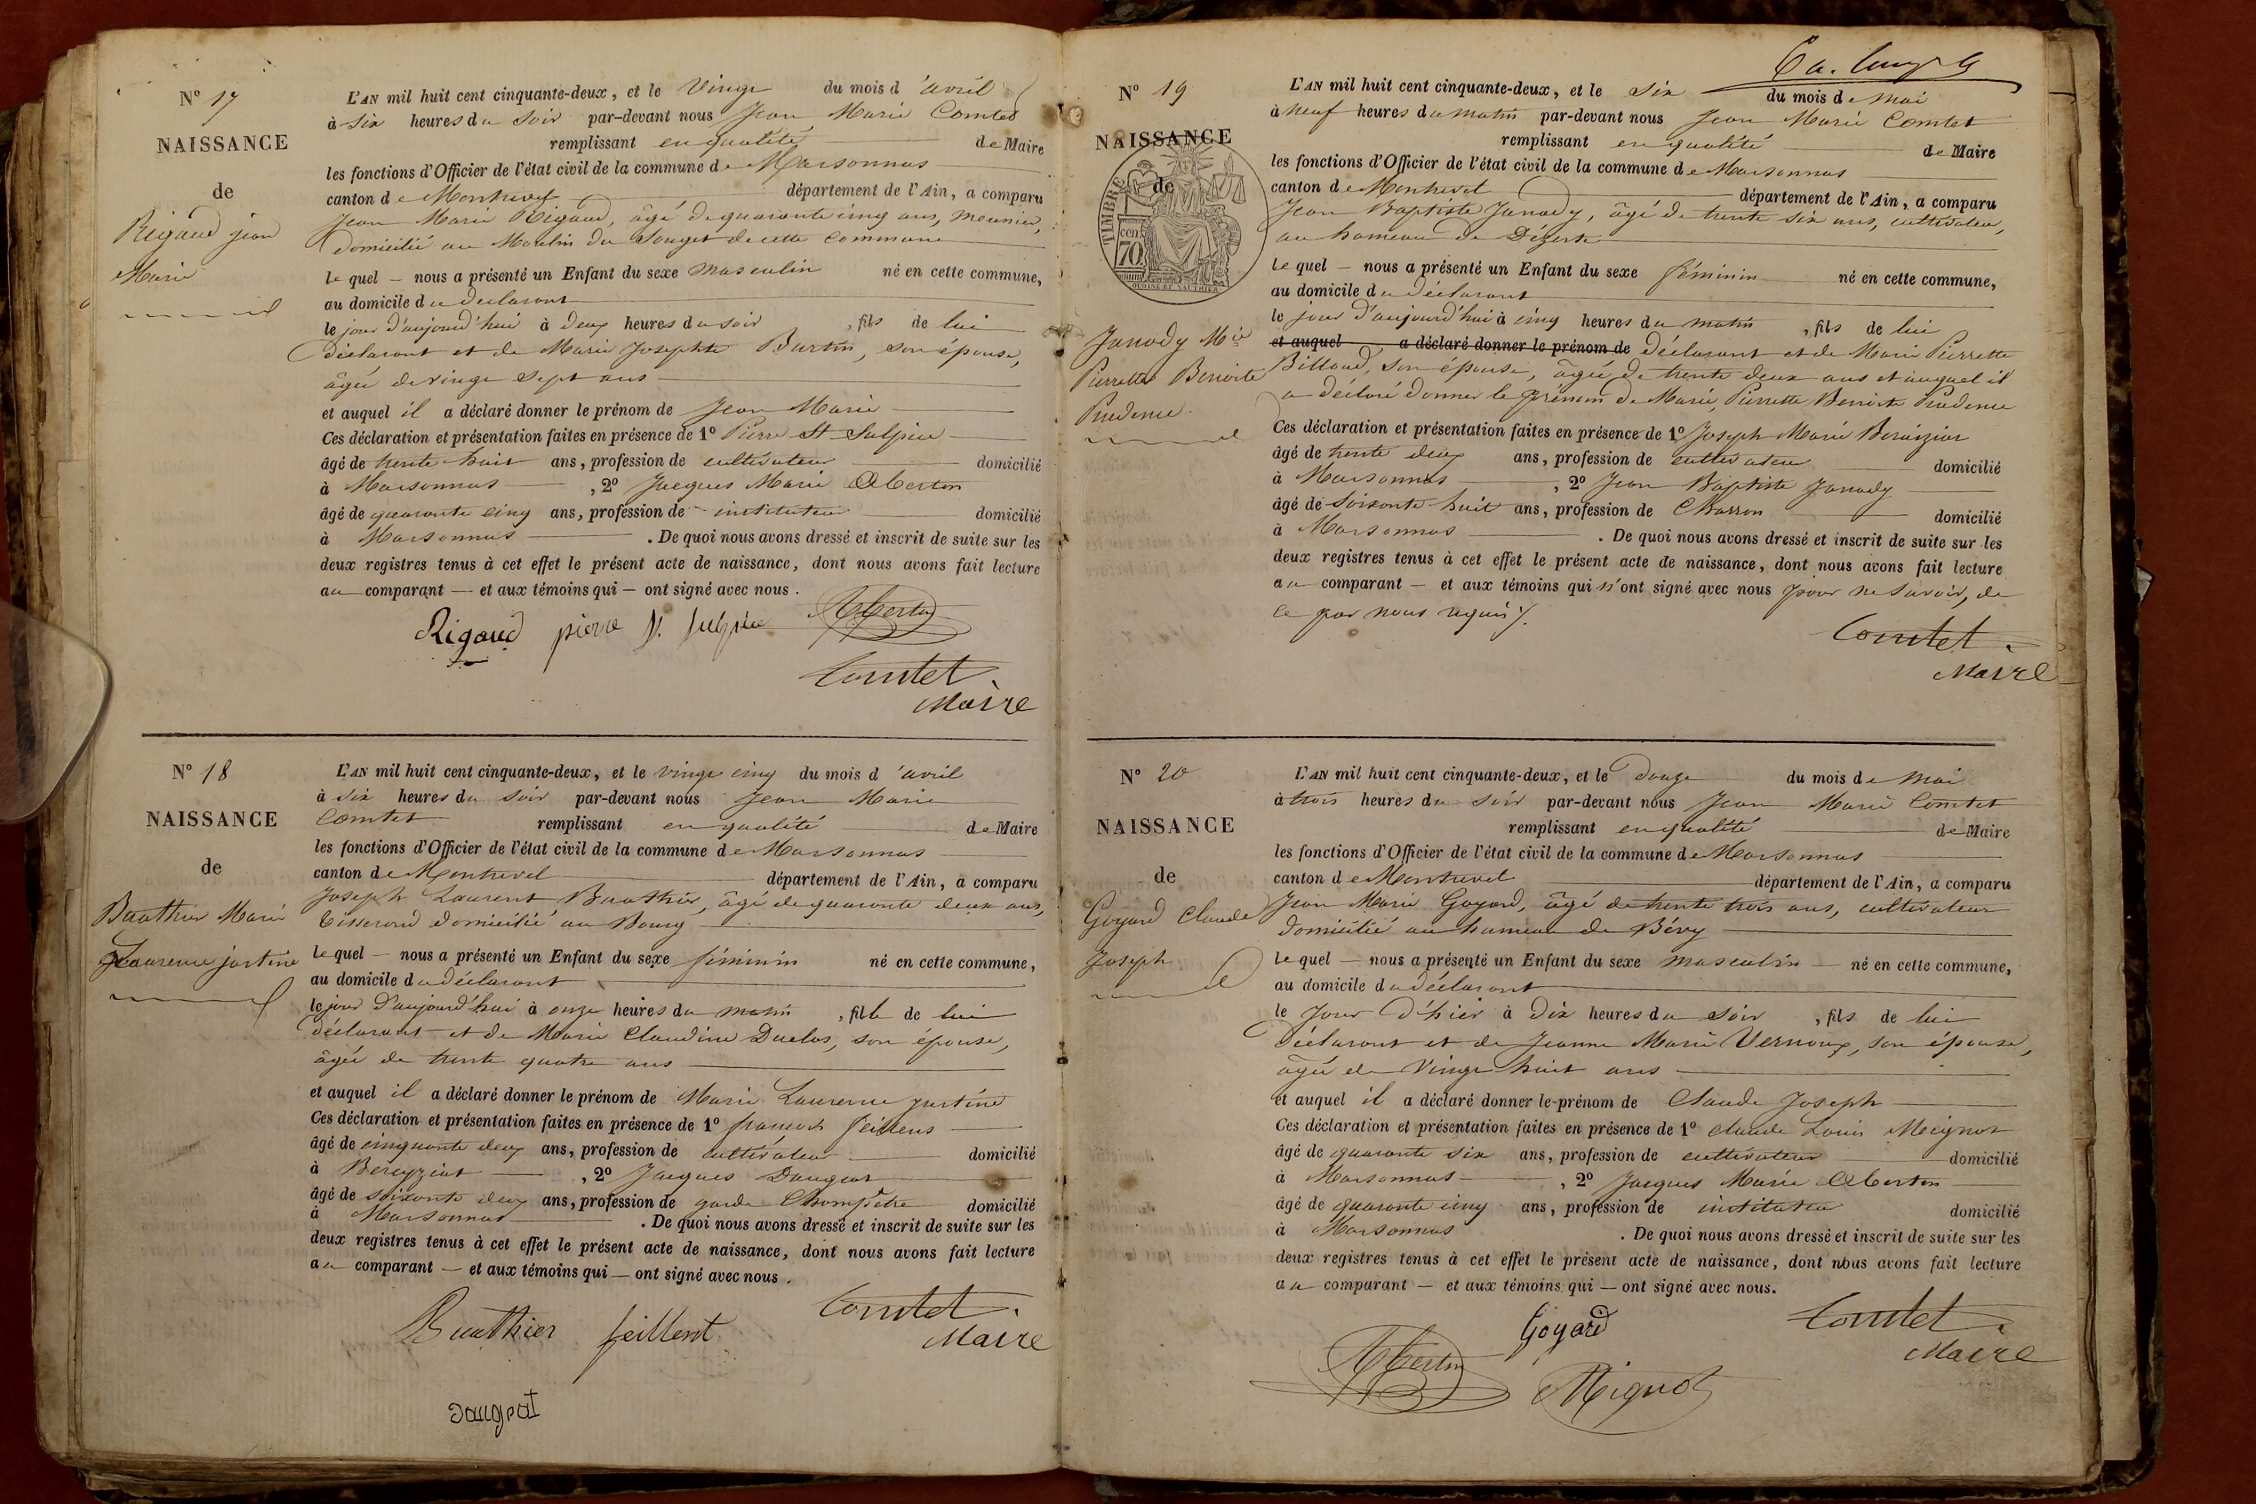 N° 17
NAISSANCE
de
Rigaud jean
Marie
L'AN mil huit cent cinquante-deux, et le vingt du mois d'avril
à six heures du soir par-devant nous Jean Marie Comtet
remplissant en qualité de Maire
les fonctions d'Officier de l'état civil de la commune de Marsonnas
canton de Montrevel département de l'Ain, a comparu
Jean Marie Rigaud, âgé de quarante cinq ans, meunier,
domicilié au Moulin du Souget de cette commune
lequel — nous a présenté un Enfant du sexe masculin né en cette commune,
au domicile du declarant
le jour d'aujourd'hui à deux heures du soir, fils de lui
déclarant et de Marie Josephte Burtin, son épouse,
âgée de vingt sept ans
et auquel il a déclaré donner le prénom de Jean Marie
Ces déclaration et présentation faites en présence de 1° Pierre St Sulpice
âgé de trente huit ans, profession de cultivateur domicilié
à Marsonnas, 2° Jacques Marie Alberton
âgé de quarante cinq ans, profession de instituteur domicilié
à Marsonnas. De quoi nous avons dressé et inscrit de suite sur les
deux registres tenus à cet effet le présent acte de naissance, dont nous avons fait lecture
au comparant — et aux témoins qui — ont signé avec nous.
Rigaud pierre St Sulpice
Comtet
Maire
N° 18
NAISSANCE
de
Buathier Marie
Laurence justine
L'AN mil huit cent cinquante-deux, et le vingt cinq du mois d'avril
à six heures du soir par-devant nous Jean Marie
Comtet remplissant en qualité de Maire
les fonctions d'Officier de l'état civil de la commune de Marsonnas
canton de Montrevel département de l'Ain, a comparu
Joseph Laurent Buathier, âgé de quarante deux ans,
tisserand domicilié au Bourg
lequel — nous a présenté un Enfant du sexe féminin né en cette commune,
au domicile du déclarant
le jour d'aujourd'hui à onze heures du matin, fille de lui
déclarant et de Marie Claudine Duclos, son épouse,
âgée de trente quatre ans
et auquel il a déclaré donner le prénom de Marie Laurence justine
Ces déclaration et présentation faites en présence de 1° françois feillens
âgé de cinquante deux ans, profession de cultivateur domicilié
à Béreyziat, 2° Jacques Daujat
âgé de soixante deux ans, profession de garde Champêtre domicilié
à Marsonnas. De quoi nous avons dressé et inscrit de suite sur les
deux registres tenus à cet effet le présent acte de naissance, dont nous avons fait lecture
au comparant — et aux témoins qui — ont signé avec nous.
Buathier feillent Comtet
Maire
N° 19
NAISSANCE
de
TIMBRE
70 cen
OUDINÉ ET VAUTHIER
Janody Mie
Pierrette Benoite
Prudence
L'AN mil huit cent cinquante-deux, et le six du mois de mai
à neuf heures du matin par-devant nous Jean Marie Comtet
remplissant en qualité de Maire
les fonctions d'Officier de l'état civil de la commune de Marsonnas
canton de Montrevel département de l'Ain, a comparu
Jean Baptiste Janody, âgé de trente six ans, cultivateur,
au hameau de Dézerte
lequel — nous a présenté un Enfant du sexe féminin né en cette commune,
au domicile du déclarant
le jour d'aujourd'hui à cinq heures du matin, fils de lui
et auquel a déclaré donner le prénom de déclarant et de Marie Pierrette
Billoud, son épouse, âgée de trente deux ans et auquel il
a déclaré donner le prénom de Marie Pierrette Benoite Prudence
Ces déclaration et présentation faites en présence de 1° Joseph Marie
âgé de trente deux ans, profession de cultivateur domicilié
à Marsonnas, 2° Jean Baptiste Janody
âgé de soixante huit ans, profession de Charron domicilié
à Marsonnas. De quoi nous avons dressé et inscrit de suite sur les
deux registres tenus à cet effet le présent acte de naissance, dont nous avons fait lecture
au comparant — et aux témoins qui n'ont signé avec nous pour ne savoir, de
ce par nous requis
Comtet
Maire
N° 20
NAISSANCE
de
Goyard Claude
Joseph
L'AN mil huit cent cinquante-deux, et le Douze du mois de mai
à trois heures du soir par-devant nous Jean Marie Comtet
remplissant en qualité de Maire
les fonctions d'Officier de l'état civil de la commune de Marsonnas
canton de Montrevel département de l'Ain, a comparu
Jean Marie Goyard, âgé de trente trois ans, cultivateur
domicilié au hameau de Bévy
lequel — nous a présenté un Enfant du sexe masculin — né en cette commune,
au domicile du déclarant
le Jour d'hier à dix heures du soir, fils de lui
déclarant et de Jeanne Marie Vernoux, son épouse,
âgée de Vingt huit ans
et auquel il a déclaré donner le prénom de Claude Joseph
Ces déclaration et présentation faites en présence de 1° Claude Louis Mignot
âgé de quarante six ans, profession de cultivateur domicilié
à Marsonnas, 2° Jacques Marie Alberton
âgé de quarante cinq ans, profession de instituteur domicilié
à Marsonnas. De quoi nous avons dressé et inscrit de suite sur les
deux registres tenus à cet effet le présent acte de naissance, dont nous avons fait lecture
au comparant — et aux témoins qui — ont signé avec nous.
Goyard Comtet
Maire
Mignot